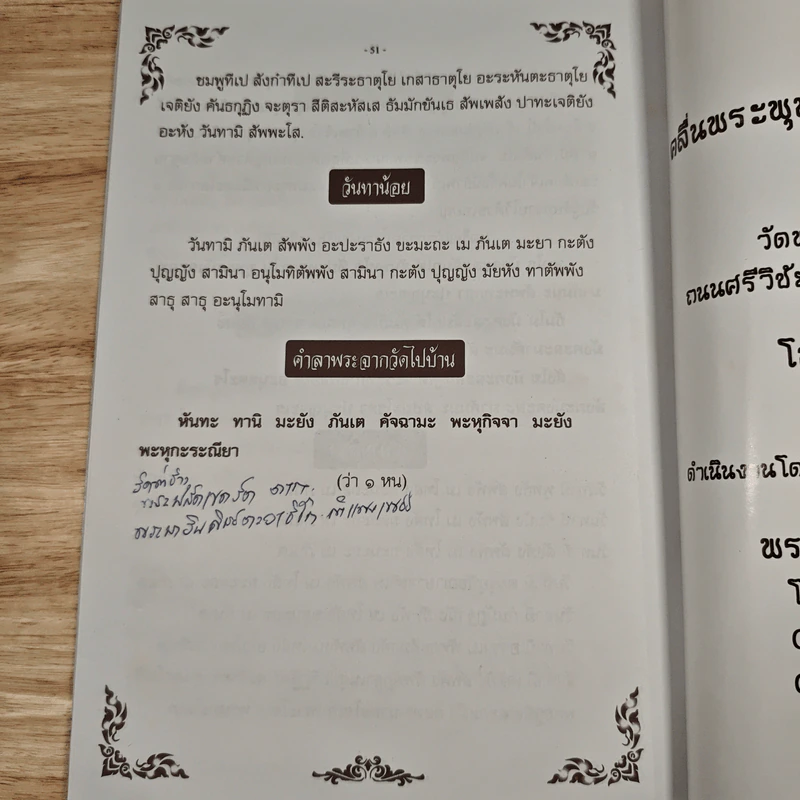 - 51 -
ชมพูทีเป สังกำทีเป สะรีระธาตุโย เกสาธาตุโย อะระหันตะธาตุโย
เจติยัง คันธกุฏิง จะตุรา สีติสะหัสเส ธัมมักขันเธ สัพเพสัง ปาทะเจติยัง
อะหัง วันทามิ สัพพะโส.
วันทาน้อย
วันทามิ ภันเต สัพพัง อะปะราธัง ขะมะถะ เม ภันเต มะยา กะตัง
ปุญญัง สามินา อนุโมทิตัพพัง สามินา กะตัง ปุญญัง มัยหัง ทาตัพพัง
สาธุ สาธุ อะนุโมทามิ
คำลาพระจากวัดไปบ้าน
หันทะ ทานิ มะยัง ภันเต คัจฉามะ พะหุกิจจา มะยัง
พะหุกะระณียา
(ว่า ๑ หน)
คลื่นพระพุ
วัด
ถนนศรีวิชั
โ
ดำเนินงานโด
พร